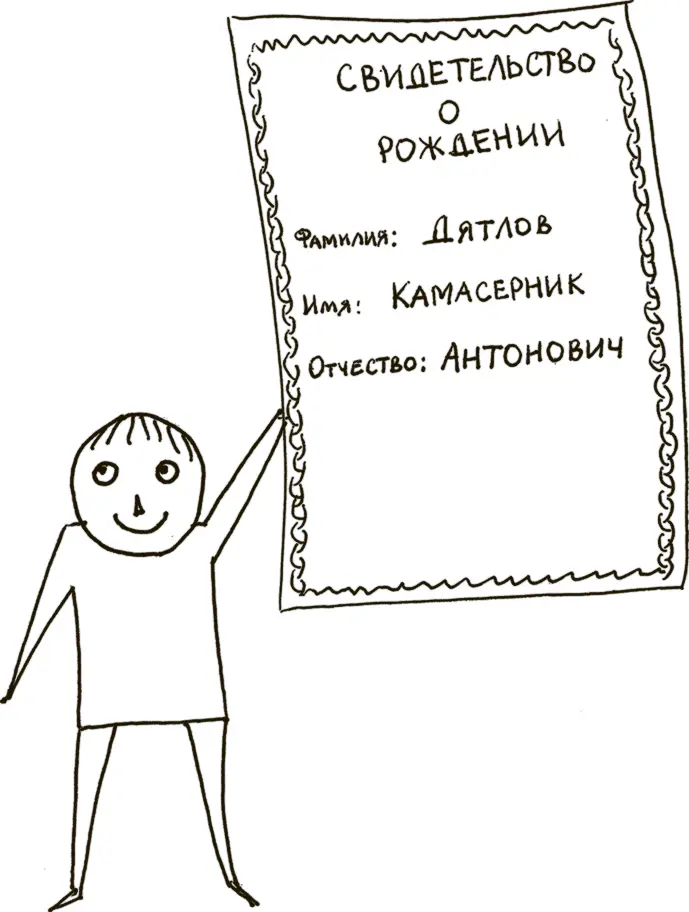 СВИДЕТЕЛЬСТВО
О
РОЖДЕНИИ
Фамилия: Дятлов
Имя: Камасерник
Отчество: Антонович